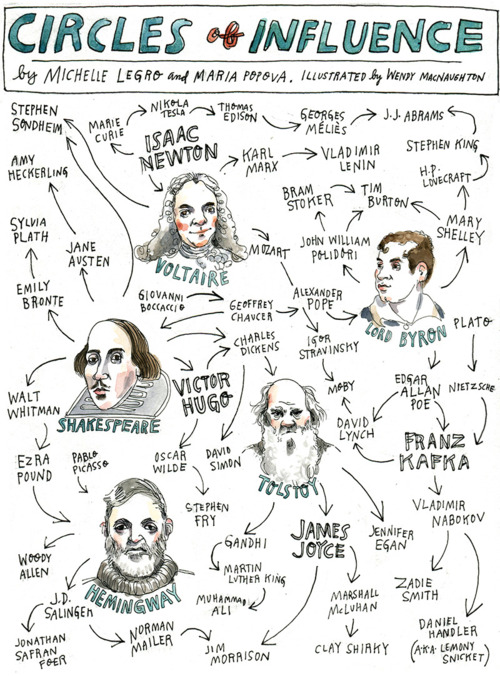 CIRCLES of INFLUENCE
by MICHELLE LEGRO and MARIA POPOVA. ILLUSTRATED by WENDY MACNAUGHTON
STEPHEN
SONDHEIM
MARIE
CURIE
NIKOLA
TESLA
THOMAS
EDISON
GEORGES
MÉLIÈS
J.J. ABRAMS
ISAAC
NEWTON
KARL
MARX
VLADIMIR
LENIN
STEPHEN KING
AMY
HECKERLING
H.P.
LOVECRAFT
BRAM
STOKER
TIM
BURTON
SYLVIA
PLATH
JANE
AUSTEN
VOLTAIRE
MOZART
JOHN WILLIAM
POLIDORI
MARY
SHELLEY
EMILY
BRONTE
GIOVANNI
BOCCACCIO
GEOFFREY
CHAUCER
ALEXANDER
POPE
LORD BYRON
PLATO
CHARLES
DICKENS
IGOR
STRAVINSKY
WALT
WHITMAN
SHAKESPEARE
VICTOR
HUGO
MOBY
EDGAR
ALLAN
POE
NIETZSCHE
DAVID
LYNCH
FRANZ
KAFKA
EZRA
POUND
PABLO
PICASSO
OSCAR
WILDE
DAVID
SIMON
TOLSTOY
STEPHEN
FRY
VLADIMIR
NABOKOV
WOODY
ALLEN
HEMINGWAY
GANDHI
JAMES
JOYCE
JENNIFER
EGAN
MARTIN
LUTHER KING
MUHAMMAD
ALI
MARSHALL
McLUHAN
ZADIE
SMITH
J.D.
SALINGER
JONATHAN
SAFRAN
FOER
NORMAN
MAILER
JIM
MORRISON
CLAY SHIRKY
DANIEL
HANDLER
(A.K.A. LEMONY
SNICKET)